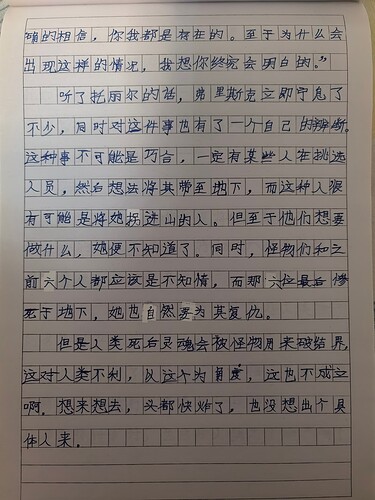 确的相信，你我都是存在的。至于为什么会
出现这样的情况，我想你终究会明白的。”
听了托丽尔的话，弗里斯克立即宁息了
不少，同时对这件事也有了一个自己的辨断。
这种事不可能是巧合，一定有某些人在挑选
人员，然后想法将其带至地下，而这种人很
有可能是将她拐进山的人。但至于他们想要
做什么，她便不知道了。同时，怪物们和之
前六个人都应该是不知情，而那六位最后惨
死于地下，她也自然要为其复仇。
但是人类死后灵魂会被怪物用来破结界，
这对人类不利，以这个为角度，这也不成立
啊。想来想去，头都快炸了，也没想出个具
体人来。